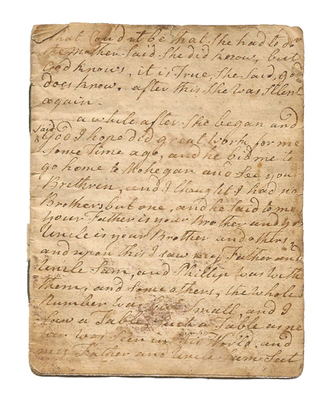 that Coud nt be that she had to do
the mother said She did know, but
God knows, it is True, She Said, God
does know, after this She was Silent
again.
a while after She began and
Said God I hope did great Work for me
Some Time ago, and he bid me to
go home to Mohegan and See you
Brethren, and I thought I had no
Brothers but one, and he said to me
your Father is your Brother and yr
Uncle is your Brother and others
and upon this I saw my Father and
Uncle Sam, and Phillip was with
them, and Some others, the whole
Number was Small, and I
Saw a Table Such a Table as never
was Seen in this World, and
my Father and Uncle Sam Set